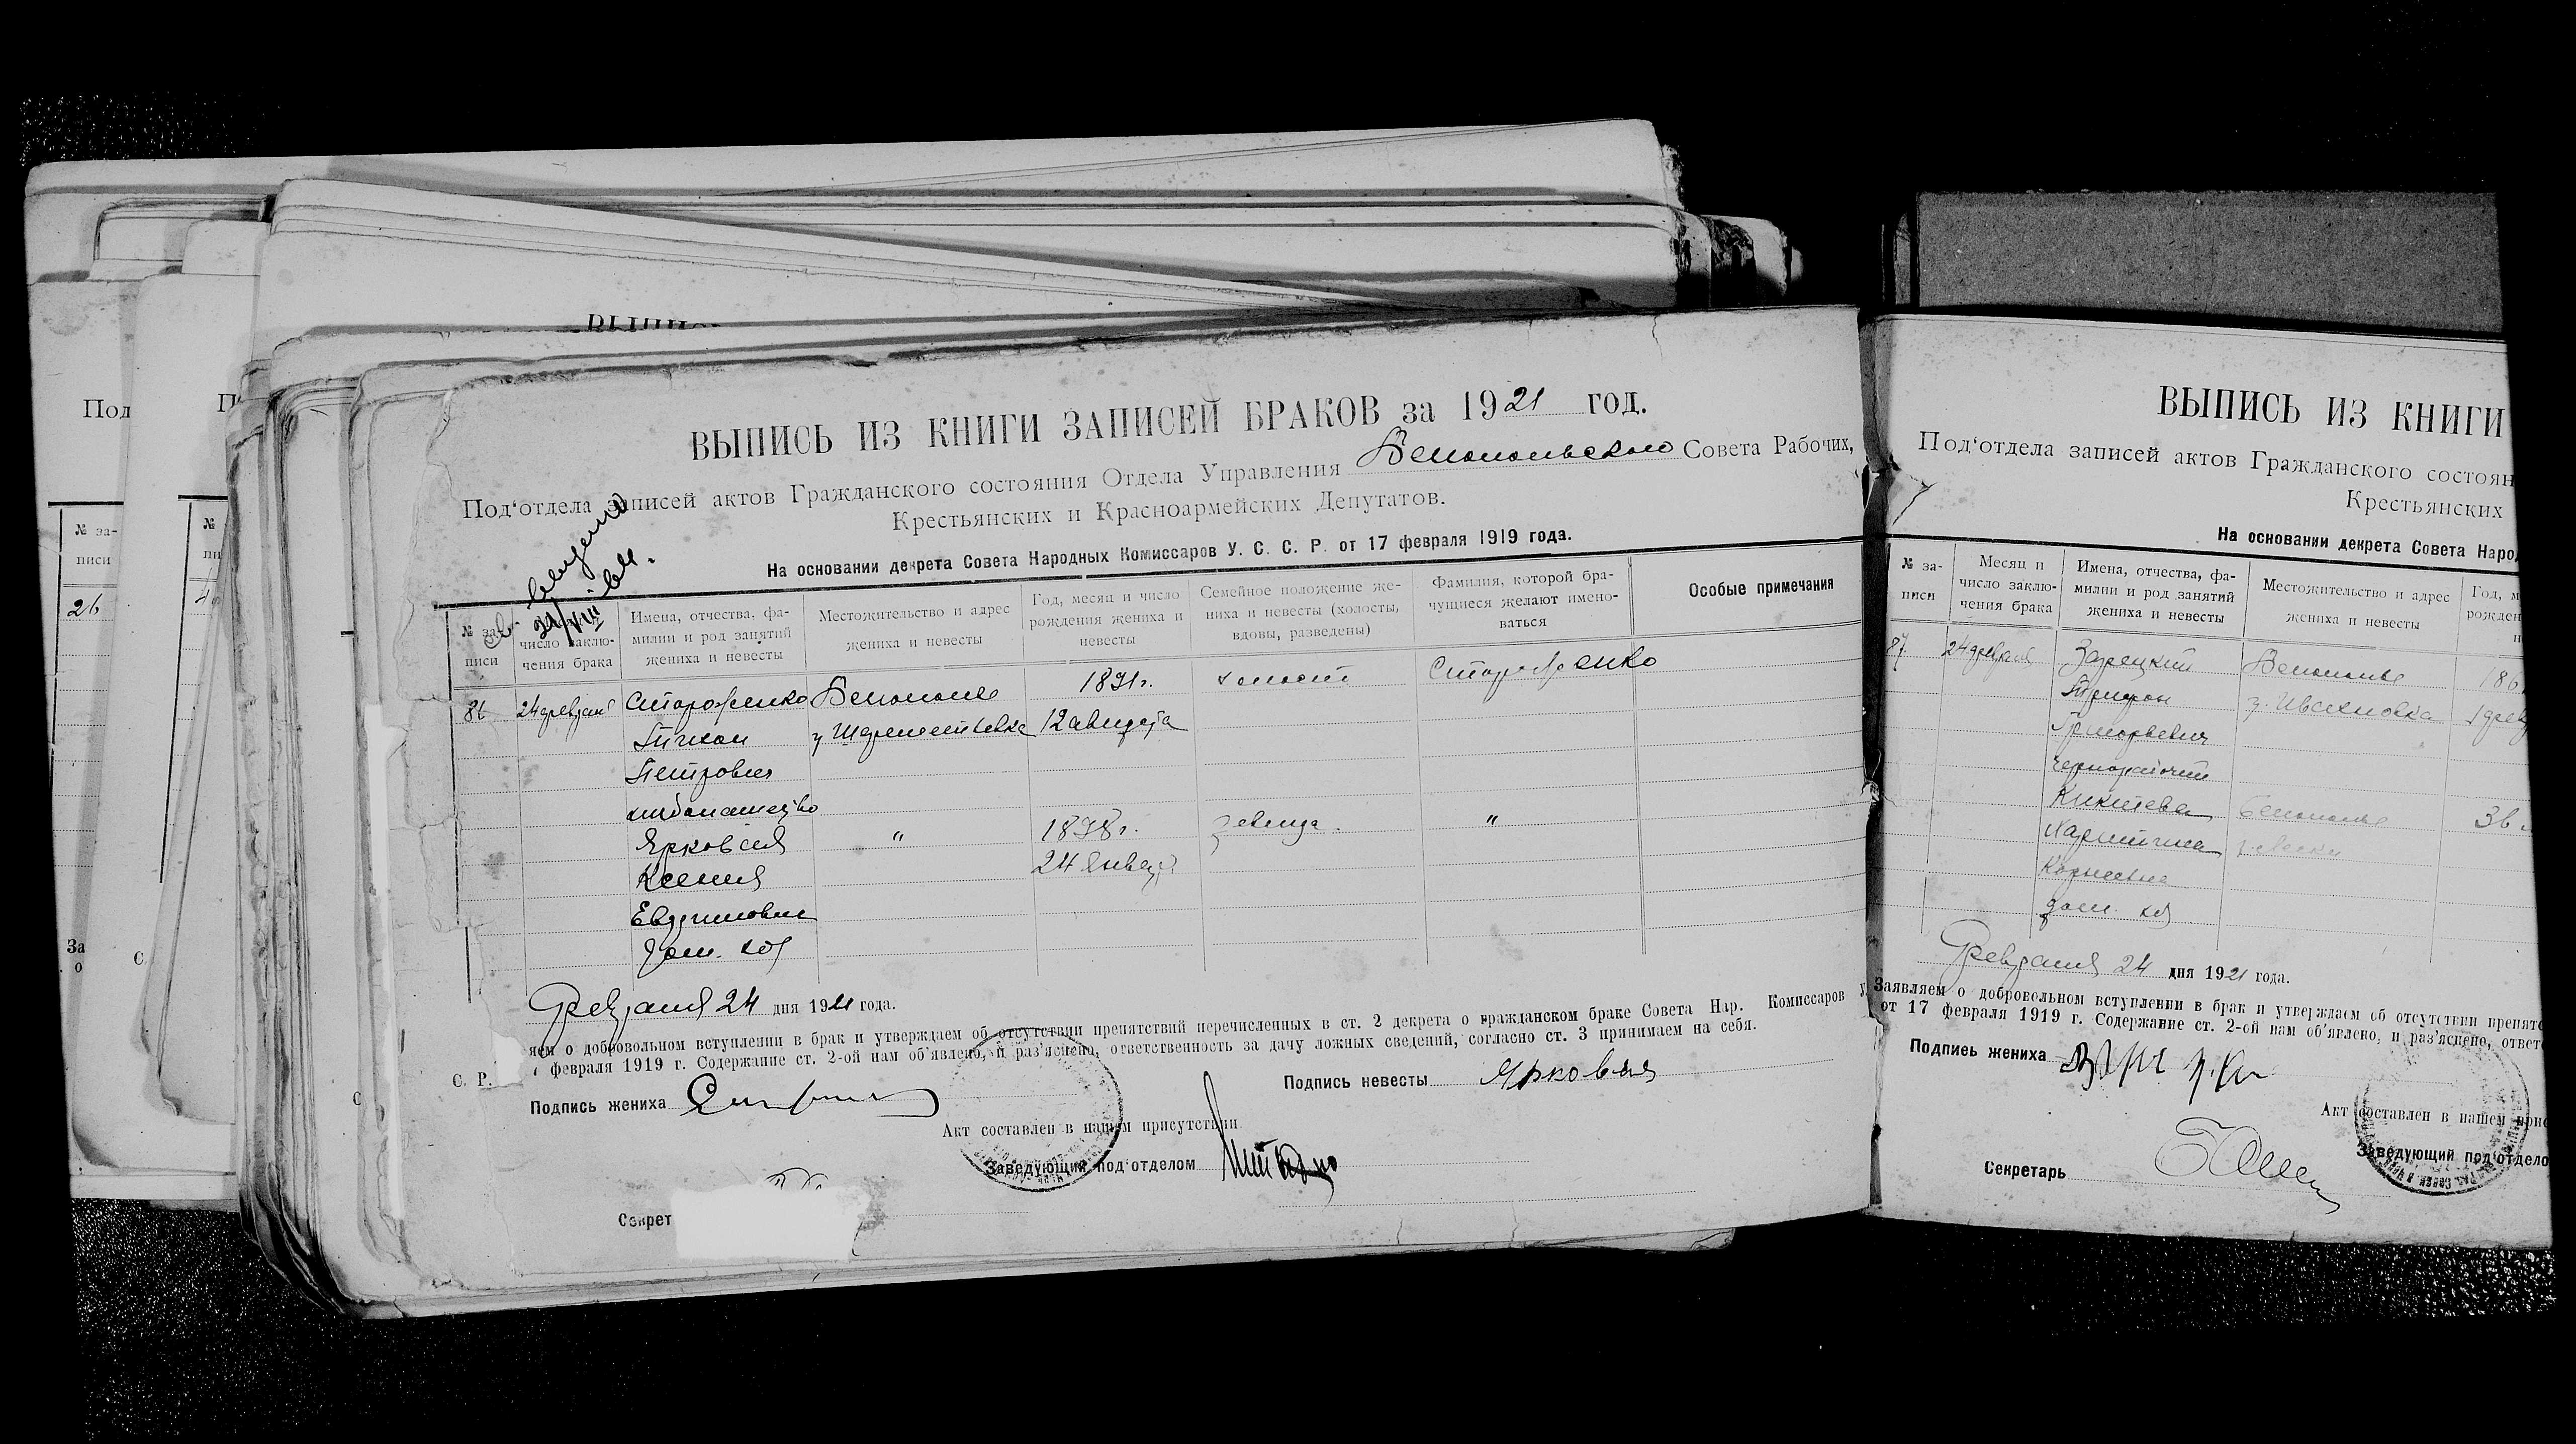 ВЫПИС
Под
П
№ за-
писи
26
№
пи
За
о
С.
С
ВЫПИСЬ ИЗ КНИГИ ЗАПИСЕЙ БРАКОВ за 1921 год.
Под'отдела записей актов Гражданского состояния Отдела Управления Белопольского Совета Рабочих,
Крестьянских и Красноармейских Депутатов.
На основании декрета Совета Народных Комиссаров У. С. С. Р. от 17 февраля 1919 года.
№ за-
писи
число заклю-
чения брака
Имена, отчества, фа-
милии и род занятий
жениха и невесты
Местожительство и адрес
жениха и невесты
Год, месяц и число
рождения жениха и
невесты
Семейное положение же-
ниха и невесты (холосты,
вдовы, разведены)
Фамилия, которой бра-
чущиеся желают имено-
ваться
Особые примечания
86 24 февраля Стороженко Белополье 1891 г. холост Стороженко
Тихон 12 августа
Петрович
хлебопашество
Ярковая " 1898 г. девица. "
Ксения 24 января
Евдокимовна
дом. хоз
Февраля 24 дня 1921 года.
яем о добровольном вступлении в брак и утверждаем об отсутствии препятствий перечисленных в ст. 2 декрета о гражданском браке Совета Нар. Комиссаров У.
С. Р. 7 февраля 1919 г. Содержание ст. 2-ой нам об'явлено, и раз'яснено, ответственность за дачу ложных сведений, согласно ст. 3 принимаем на себя.
Подпись жениха
Подпись невесты Ярковая
Акт составлен в нашем присутствии
Заведующий под'отделом
Секрет
ВЫПИСЬ ИЗ КНИГИ
Под'отдела записей актов Гражданского состоян
Крестьянских
На основании декрета Совета Народ
№ за-
писи
Месяц и
число заклю-
чения брака
Имена, отчества, фа-
милии и род занятий
жениха и невесты
Местожительство и адрес
жениха и невесты
Год, м
рожден
н
87 24 февраля Зарецкий Белополье 186
Трифон у. Ивахновка 1 фев
Григорьевич
чернорабочий
Никитева Белополье 36
Харитина
Корнеевна
дом. хоз
Февраля 24 дня 1921 года.
Заявляем о добровольном вступлении в брак и утверждаем об отсутствии препятс
от 17 февраля 1919 г. Содержание ст. 2-ой нам об'явлено, и раз'яснено, ответс
Подпись жениха
Акт составлен в нашем прис
Заведующий под'отдело
Секретарь